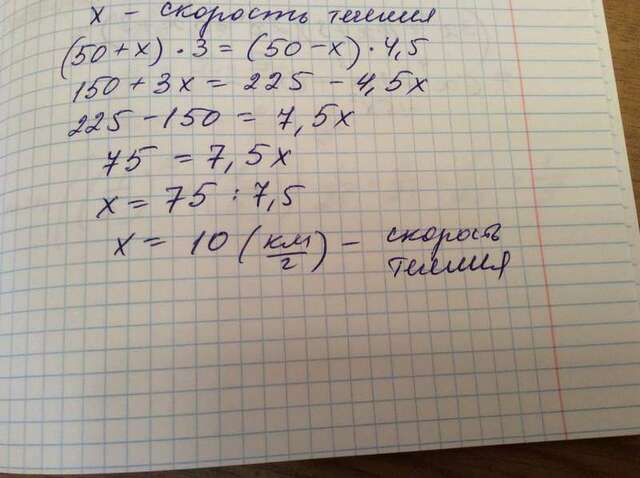 x - скорость течения
(50 + x) · 3 = (50 - x) · 4,5
150 + 3x = 225 - 4,5x
225 - 150 = 7,5x
75 = 7,5x
x = 75 : 7,5
x = 10 (км/г) - скорость
течения